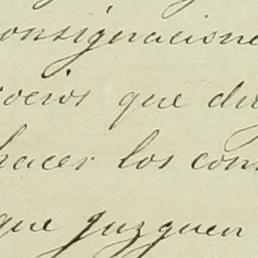 onsignacione
ocios que du
hacer los con
que juzguen